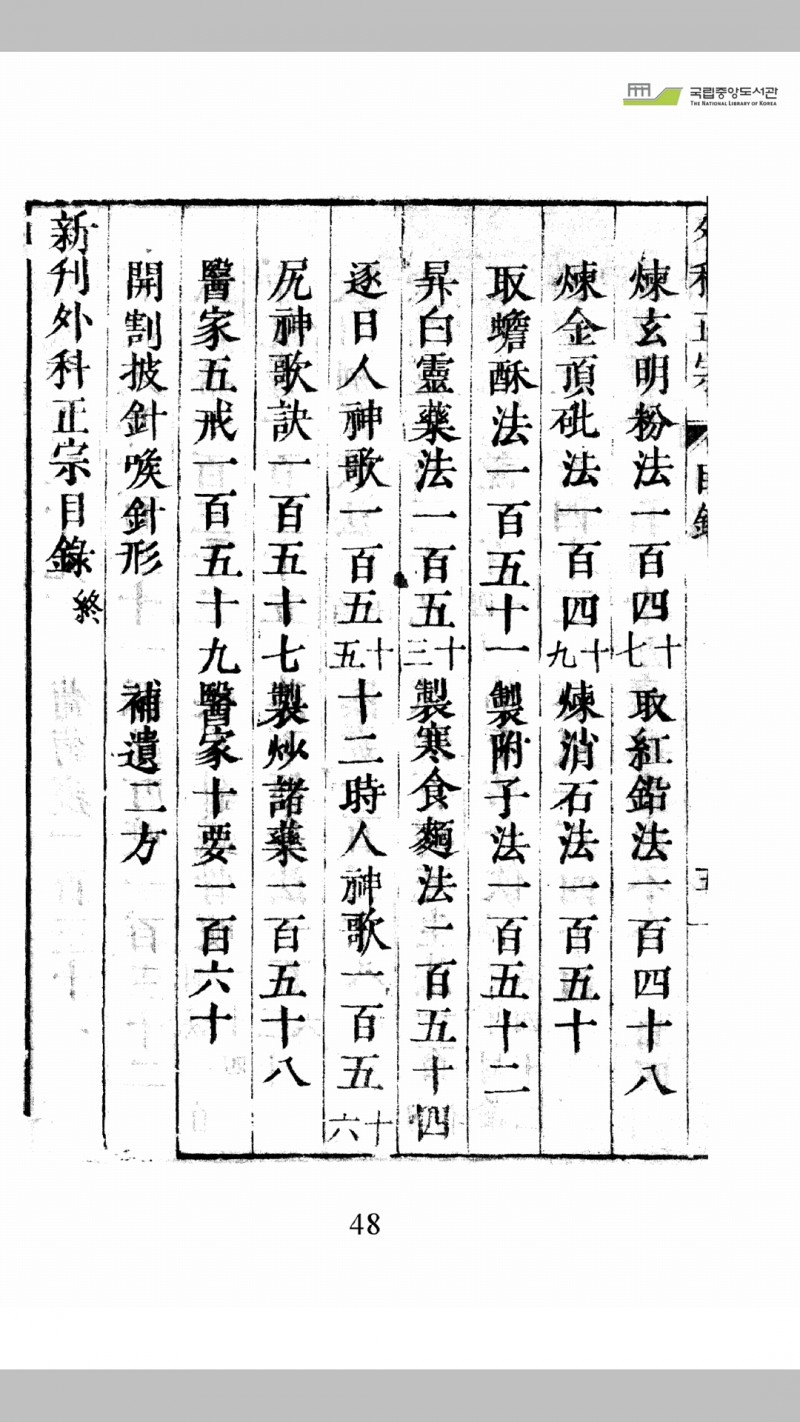 국립중앙도서관
THE NATIONAL LIBRARY OF KOREA
外科正宗 目錄 五
煉玄明粉法一百四十七 取紅鉛法一百四十八
煉金頂砒法一百四十九 煉消石法一百五十
取蟾酥法一百五十一 製附子法一百五十二
昇白靈藥法一百五十三 製寒食麵法一百五十四
逐日人神歌一百五十五 十二時人神歌一百五十六
尻神歌訣一百五十七 製炒諸藥一百五十八
醫家五戒一百五十九 醫家十要一百六十
開割披針喉針形 補遺二方
新刊外科正宗目錄終
48